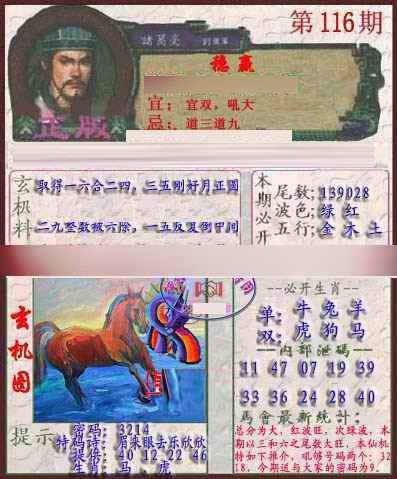 第116期
諸葛亮
稳赢
宜：宜双，吼大
忌：道三道九
正版
玄机料
取得一六合二四，三五刚好月正圆
二九整数被六除，一五反要倒中间
本期必开
尾数:139028
波色:绿 红
五行:金 木 土
玄机图
--必开生肖--
单:牛 兔 羊
双:虎 狗 马
--内部泄码--
11 47 07 19 39
33 36 24 28 40
馬會最新統计:
总分为大，红波旺，次绿波，本
期以三和六之尾数大旺，本仙机
特如下推介，吼够号码两个: 32
18，今期送与大家的密码为9.
提示
密码: 3214
特码诗: 眉来眼去乐欣欣
提楼: 40 12 22 46
生肖: 马 虎